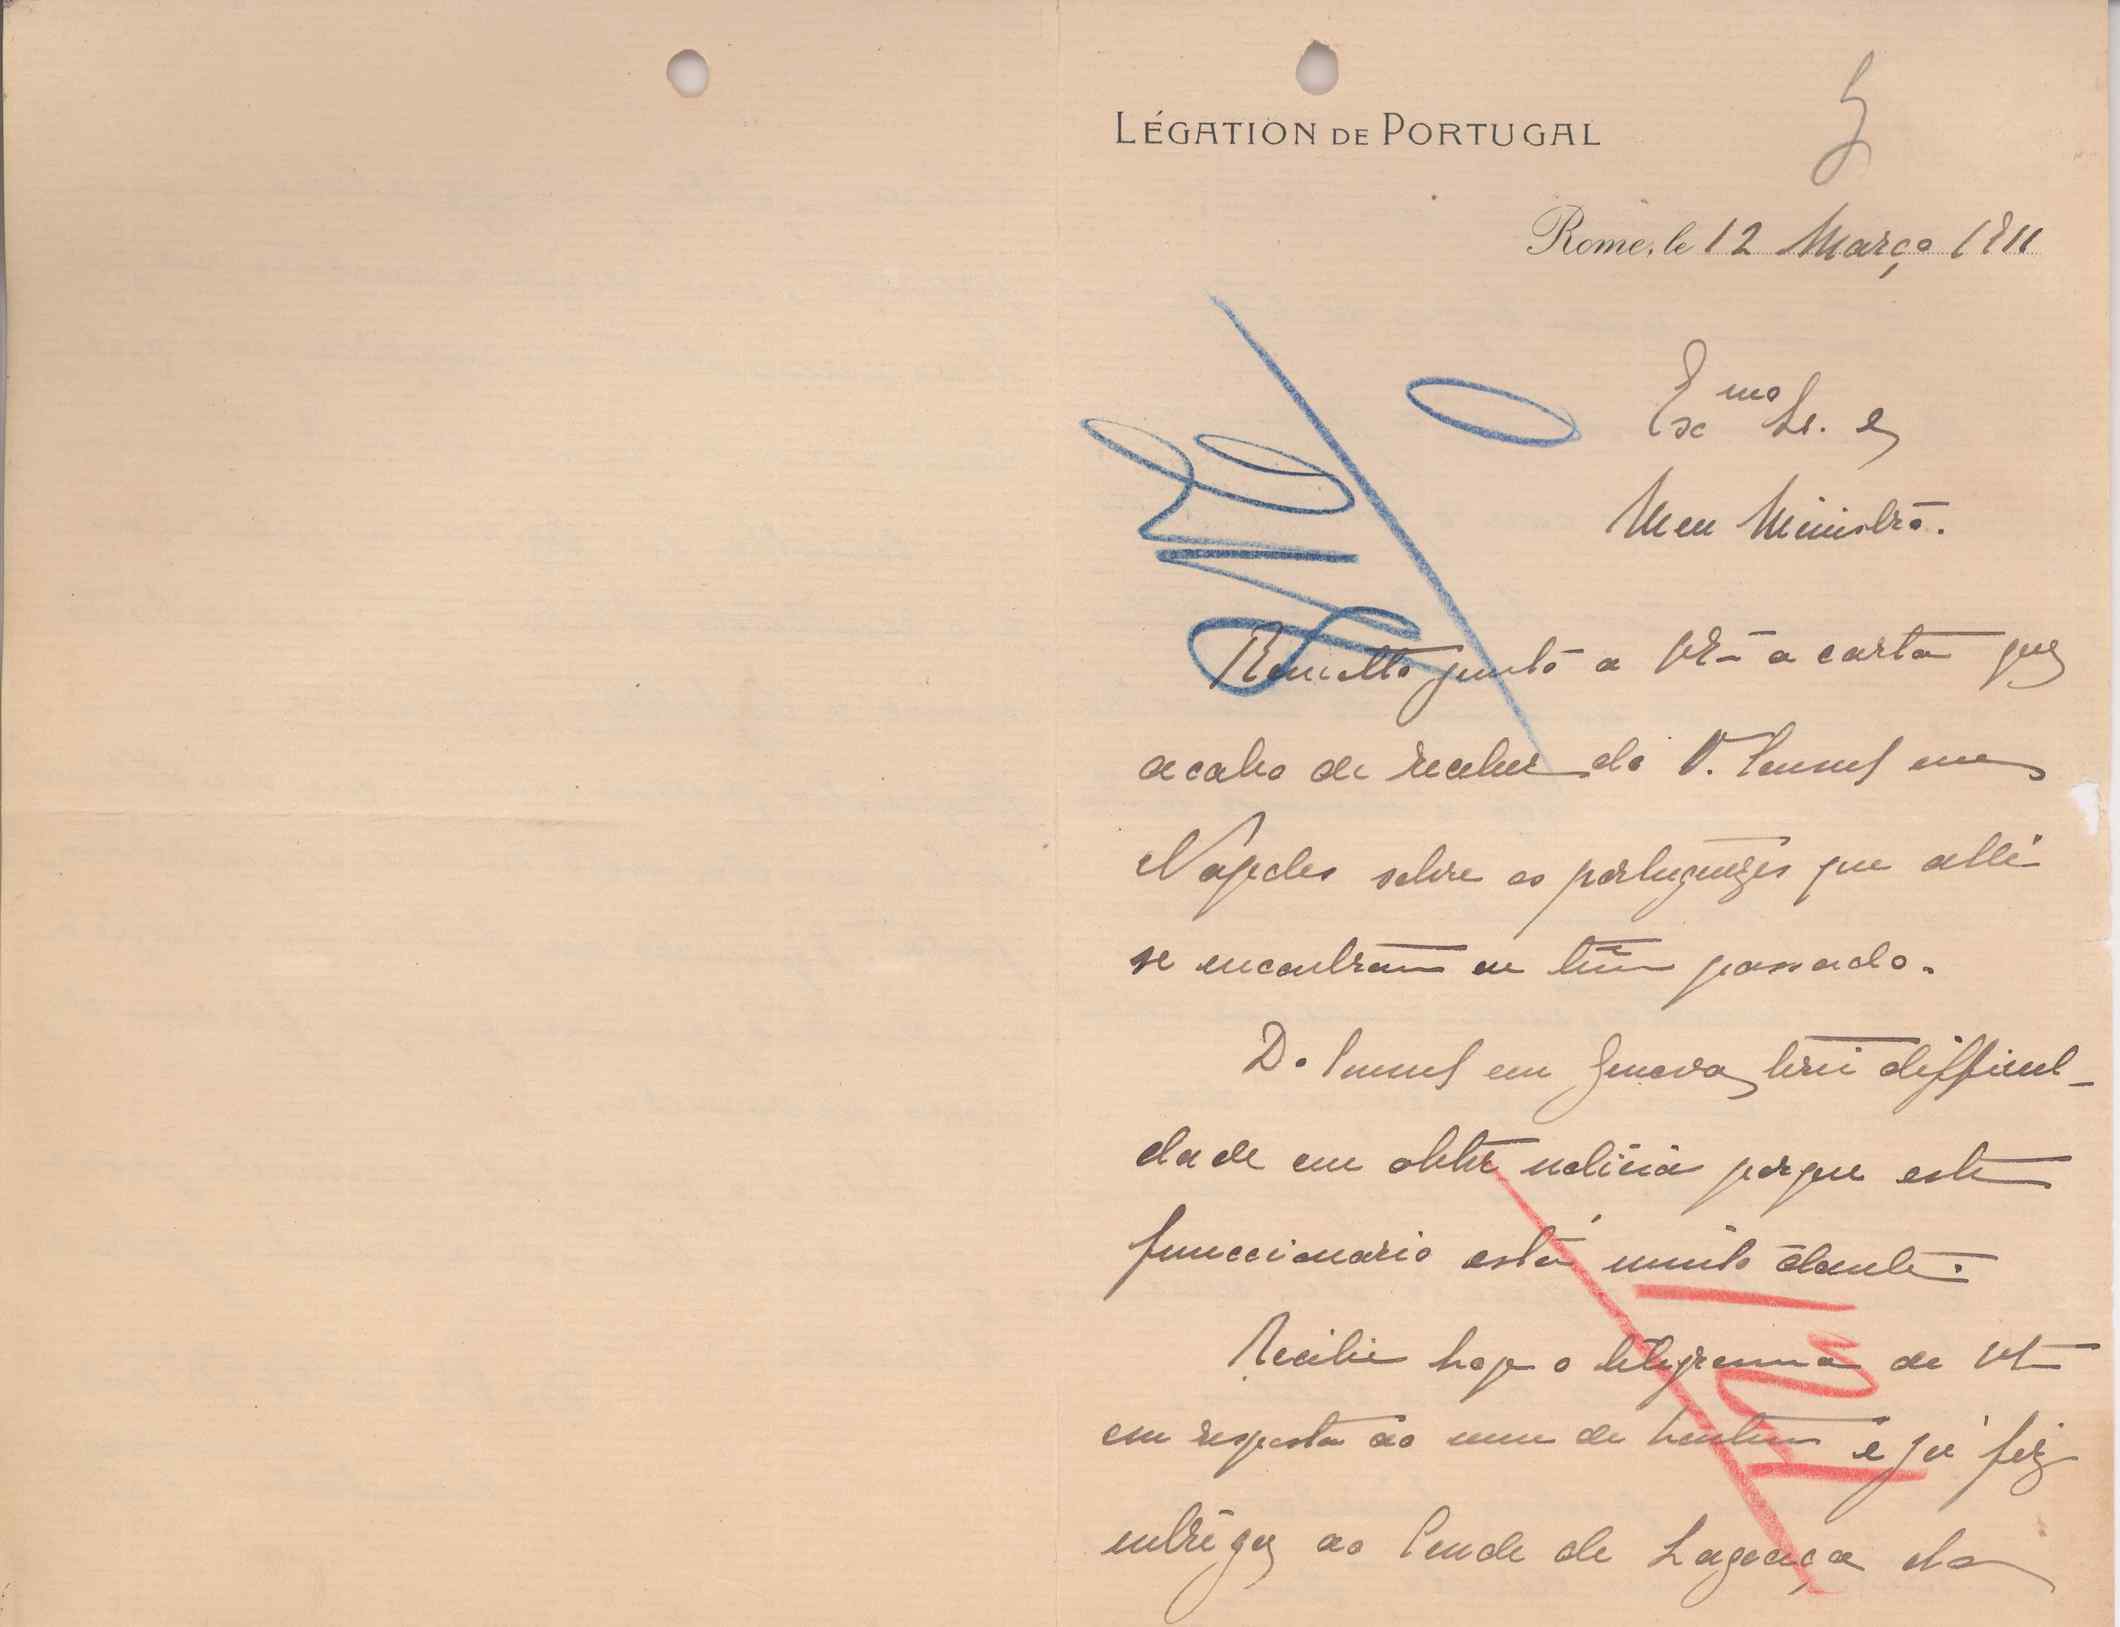 LÉGATION DE PORTUGAL
Rome, le 12 Março 1911
Exmo Sr. e
Meu Ministro.
Remetto junto a VEx a carta que
acabo de receber do V. Consul em
Napoles sobre os portuguezes que alli
se encontram ou teem passado.
Do Consul em Genova, terei difficul-
dade em obter noticia porque este
funccionario está muito doente.
Recibi hoje o telegramma de VEx
em resposta ao meu de hontem e já fiz
entrega ao Conde de Lagoaça da